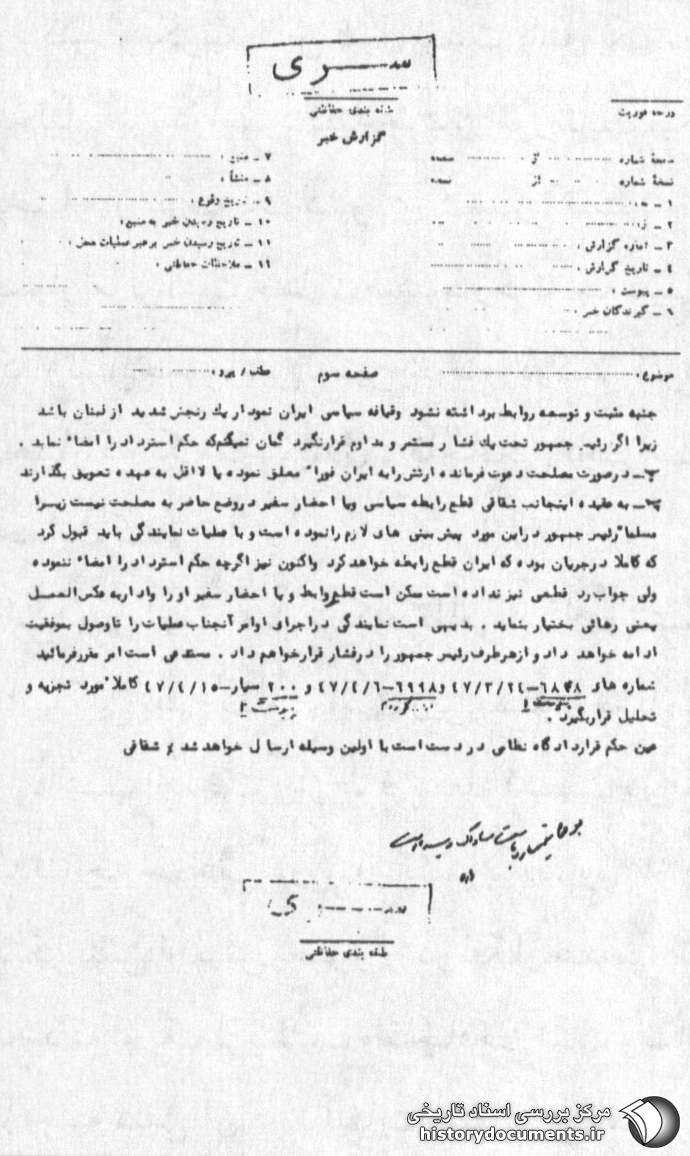 سری
طبقه بندی حفاظتی
گزارش خبر
درجه فوریت
نسخهٔ شماره از صفحه
نسخهٔ شماره از نسخه
۱ ـ به:
۲ ـ از:
۳ ـ شماره گزارش :
۴ ـ تاریخ گزارش :
۵ ـ پیوست :
۶ ـ گیرندگان خبر :
۷ ـ منبع :
۸ ـ منشأ :
۹ ـ تاریخ وقوع :
۱۰ ـ تاریخ رسیدن خبر به منبع :
۱۱ ـ تاریخ رسیدن خبر به رهبر عملیات محل :
۱۲ ـ ملاحظات حفاظتی :
موضوع : صفحه سوم عطف / پیرو :
جنبه مثبت و توسعه روابط برداشته نشود وقیافه سیاسی ایران نمودار یك رنجش شدید از لبنان باشد
زیرا اگر رئیس جمهور تحت یك فشار مستمر و مداوم قرارنگیرد گمان نمیکنم که حکم استرداد را امضاء نماید .
در صورت مصلحت دعوت فرمانده ارتش را به ایران فوراً معلق نموده یا لااقل به عهده تعویق بگذارند
به عقیده اینجانب شقاقی قطع رابطه سیاسی ویا احضار سفیر در وضع حاضر به مصلحت نیست زیرا
مسلماً رئیس جمهور در این مورد پیش بینی های لازم را نموده است و با عملیات نمایندگی باید قبول کرد
که کاملا در جریان بوده که ایران قطع رابطه خواهد کرد واکنون نیز اگرچه حکم استرداد را امضاء ننموده
ولی جواب رد قطعی نیز نداده است ممکن است قطع روابط و یا احضار سفیر او را وادار به عکس العمل
یعنی رهائی بختیار بنماید . بدیهی است نمایندگی در اجرای اوامر آنجناب عملیات را تا وصول بموفقیت
ادامه خواهد داد و از هر طرف رئیس جمهور را در فشار قرار خواهم داد . مستدعی است امر مقرر فرمائید
شماره های ۶۸۴۸ـ۴۷/۳/۲۴ و ۶۹۹۸ـ۴۷/۴/۶ و ۲۰۰ سیار ـ۴۷/۴/۱۵ کاملاً مورد تجزیه و
پیوست ۱
تحلیل قرار بگیرد .
عین حکم قرار دادگاه نظامی در دست است با اولین وسیله ارسال خواهد شد شقاقی
طبقه بندی حفاظتی
مرکز بررسی اسناد تاریخی
historydocuments.ir